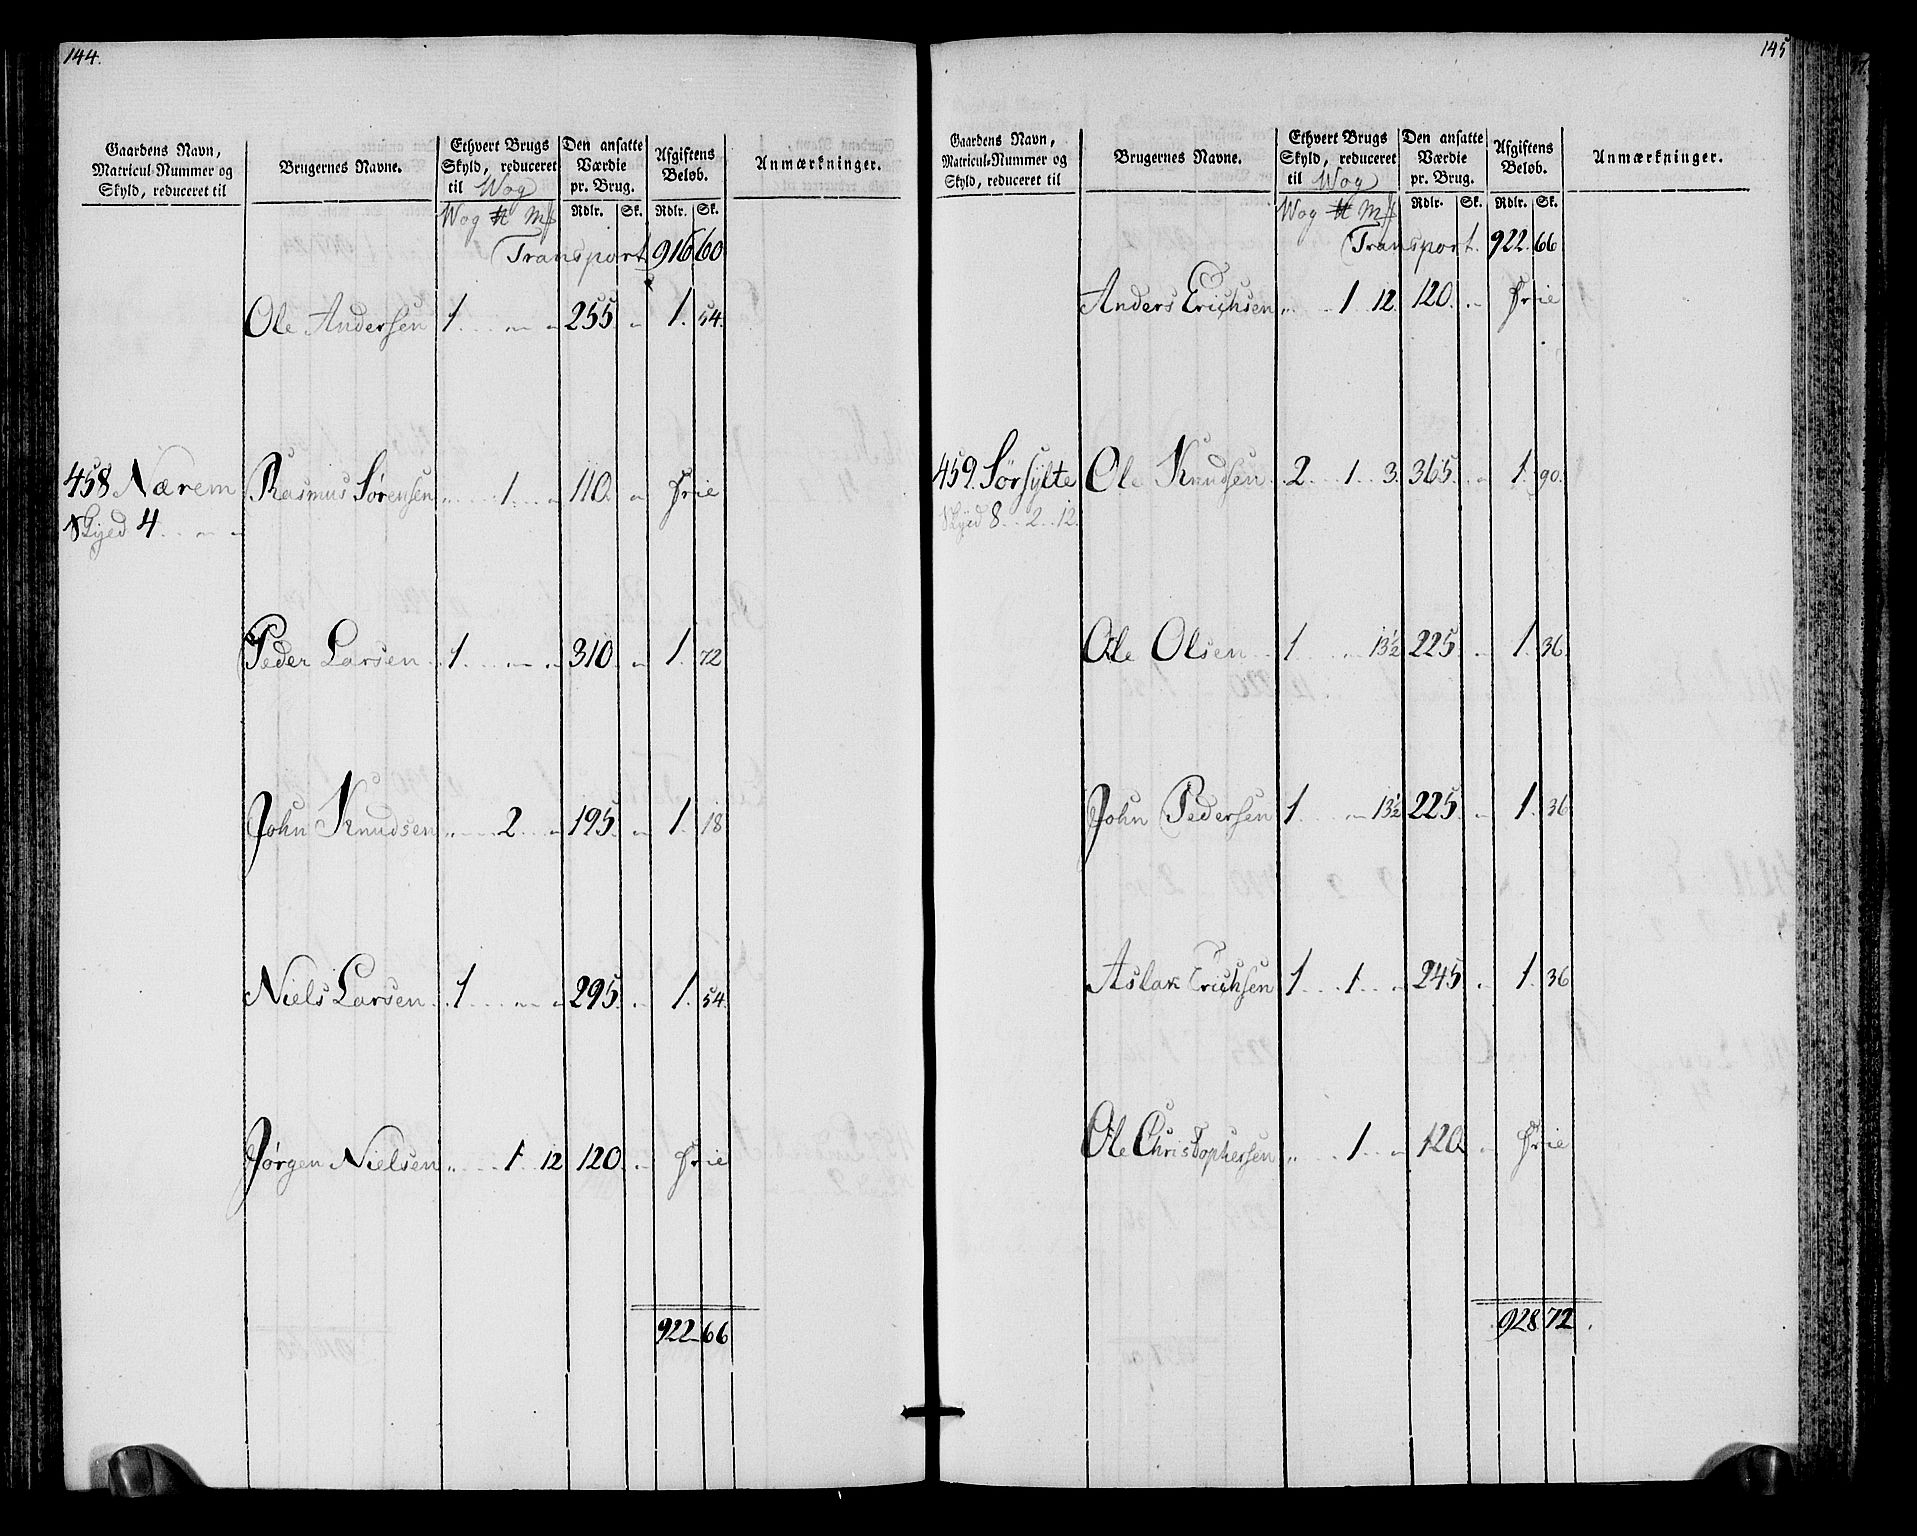 144.
Gaardens Navn, Matricul-Nummer og Skyld, reduceret til | Brugernes Navne. | Ethvert Brugs Skyld, reduceret til Wog | Den ansatte Værdie pr. Brug. | Afgiftens Beløb. | Anmærkninger.
Wog ℔ Mk | Rdlr. | Sk. | Rdlr. | Sk.
Transport 916 60
Ole Andersen 1 . . „ „ 255. „ 1. 54.
458 Nærem Rasmus Sørensen „ . . 1 . . „ 110. „ frie
Skyed 4 . . „ „
Peder Larsen 1 . . „ „ 310. „ 1. 72
John Knudsen „ . . 2 . . „ 195. „ 1. 18
Niels Larsen 1 . . „ „ 295. „ 1. 54.
Jørgen Nielsen „ . . 1 12 120. „ frie
922 66
145
Gaardens Navn, Matricul-Nummer og Skyld, reduceret til | Brugernes Navne. | Ethvert Brugs Skyld, reduceret til Wog | Den ansatte Værdie pr. Brug. | Afgiftens Beløb. | Anmærkninger.
Wog ℔ Mk | Rdlr. | Sk. | Rdlr. | Sk.
Transport. 922. 66
Anders Erichsen „ . . 1 12. 120. „ frie
459. Sørsylte Ole Knudsen 2 . . 1 . . 3. 365. „ 1. 90.
Skyed 8 . . 2 . . 12.
Ole Olsen 1 . . „ 13½ 225. „ 1. 36.
John Pedersen 1 . . „ 13½ 225. „ 1. 36
Aslak Erichsen 1 . . 1 . . „ 245 „ 1. 36
Ole Christophersen „ . . 1 . . „ 120. „ frie
928 72.